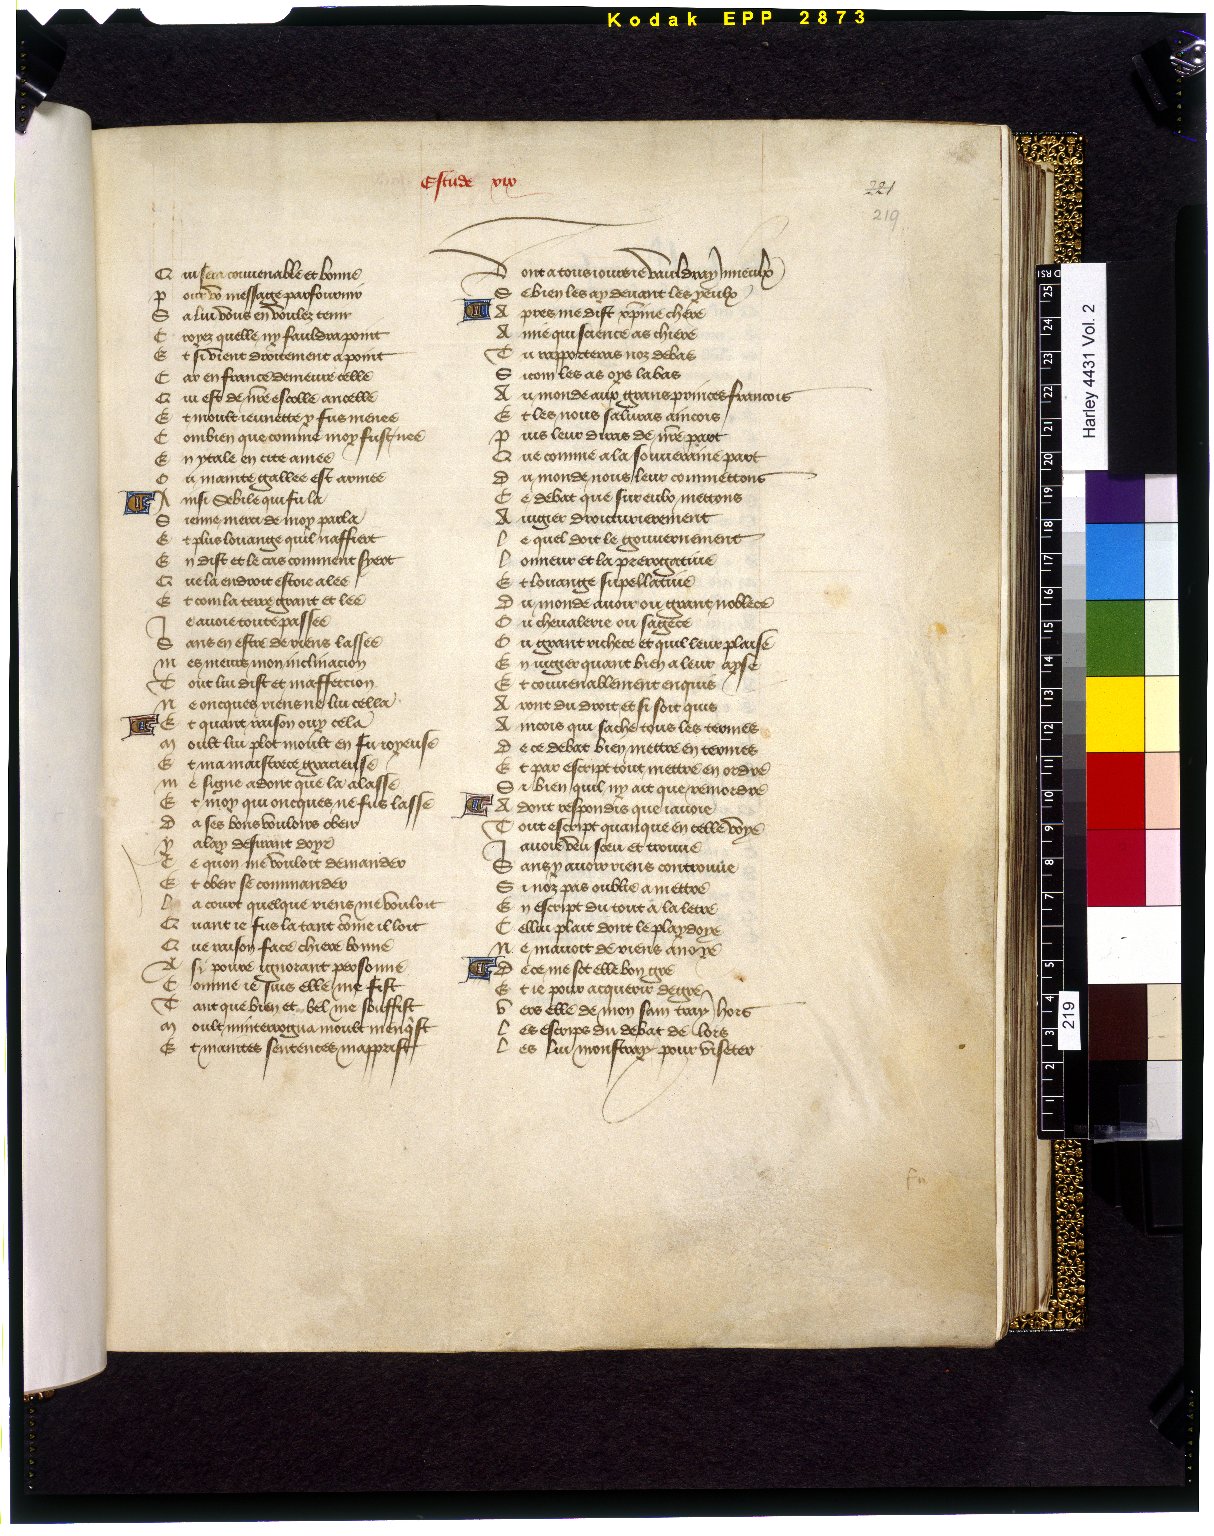 Kodak EPP 2873
Estude xix
221
219
Qui sera couuenable et bonne
Pour vo message parfournir
Sa lui vous en voulez tenir
Croyez quelle ny fauldra point
Et si vient droitement a point
Car en france demeure celle
Qui est de nre escolle ancelle
Et moult ieunette y fus menee
Combien que comme moy fust nee
En ytale en cite amee
Ou mainte gallee est armee
Ainsi Sebile qui fu la
Sienne merci de moy parla
Et plus louange quil naffiert
En dist et le cas comment fyert
Que la endroit estoie alee
Et com la terre grant et lee
Ie auoie toute passee
Sans en estre de riens lassee
Mes meurs mon inclinacion
Tout lui dist et maffeccion
Ne oncques riens ne lui cella
Et quant raison ouy cela
Moult lui plot moult en fu ioyeuse
Et ma maistrece gracieuse
Me signe adont que la alasse
Et moy qui oncques ne fus lasse
Da ses bons vouloirs obeir
Y alay desirant doyr
Ce quon me vouloit demander
Et obeir se commander
La court quelque riens me vouloit
Quant ie fus la tant cōme il loit
Que raison face chiere bonne
A si poure ignorant personne
Comme ie suis elle me fist
Tant que bien et bel me souffist
Moult minterrogua moult menq̄st
Et maintes sentences mapprist
Dont a tous iours ie vauldray mieulx
Se bien les ay deuant les yeulx
Apres me dist xp̄ine chere
Amie qui science as chiere
Tu rapporteras noz debas
Si com les as oys la bas
Au monde aux grans princes francois
Et les nous saluras aincois
Puis leur diras de nre part
Que comme a la souueraine part
Du monde nous leur commettons
Ce debat que sur eulx mettons
A iugier droicturierement
Le quel doit le gouuernement
Lonneur et la prerogatiue
Et louange supellatiue
Du monde auoir ou grant noblece
Ou cheualerie ou sagece
Ou grant richece et quil leur plaise
En iugier quant bien a leur ayse
Et couuenablement enquis
Aront du droit et si soit quis
Aincois qui sache tous les termes
De ce debat bien mettre en termes
Et par escript tout mettre en ordre
Si bien quil ny ait que remordre
Adont respondis que iauoie
Tout escript quanque en celle voye
Iauoie veu sceu et trouue
Sans y auoir riens controuue
Si noz pas oublie a mettre
En escript du tout a la letre
Cellui plait dont le playdoye
Ne mauoit de riens anoye
De ce me scet elle bon gre
Et ie pour acquerir degre
Vers elle de mon sain tray hors
Les escrips du debat de lors
Les lui monstray pour viseter
Harley 4431 Vol. 2
25
24
23
22
21
20
19
18
17
16
15
14
13
12
11
10
9
8
7
5
4
3
2
1
219